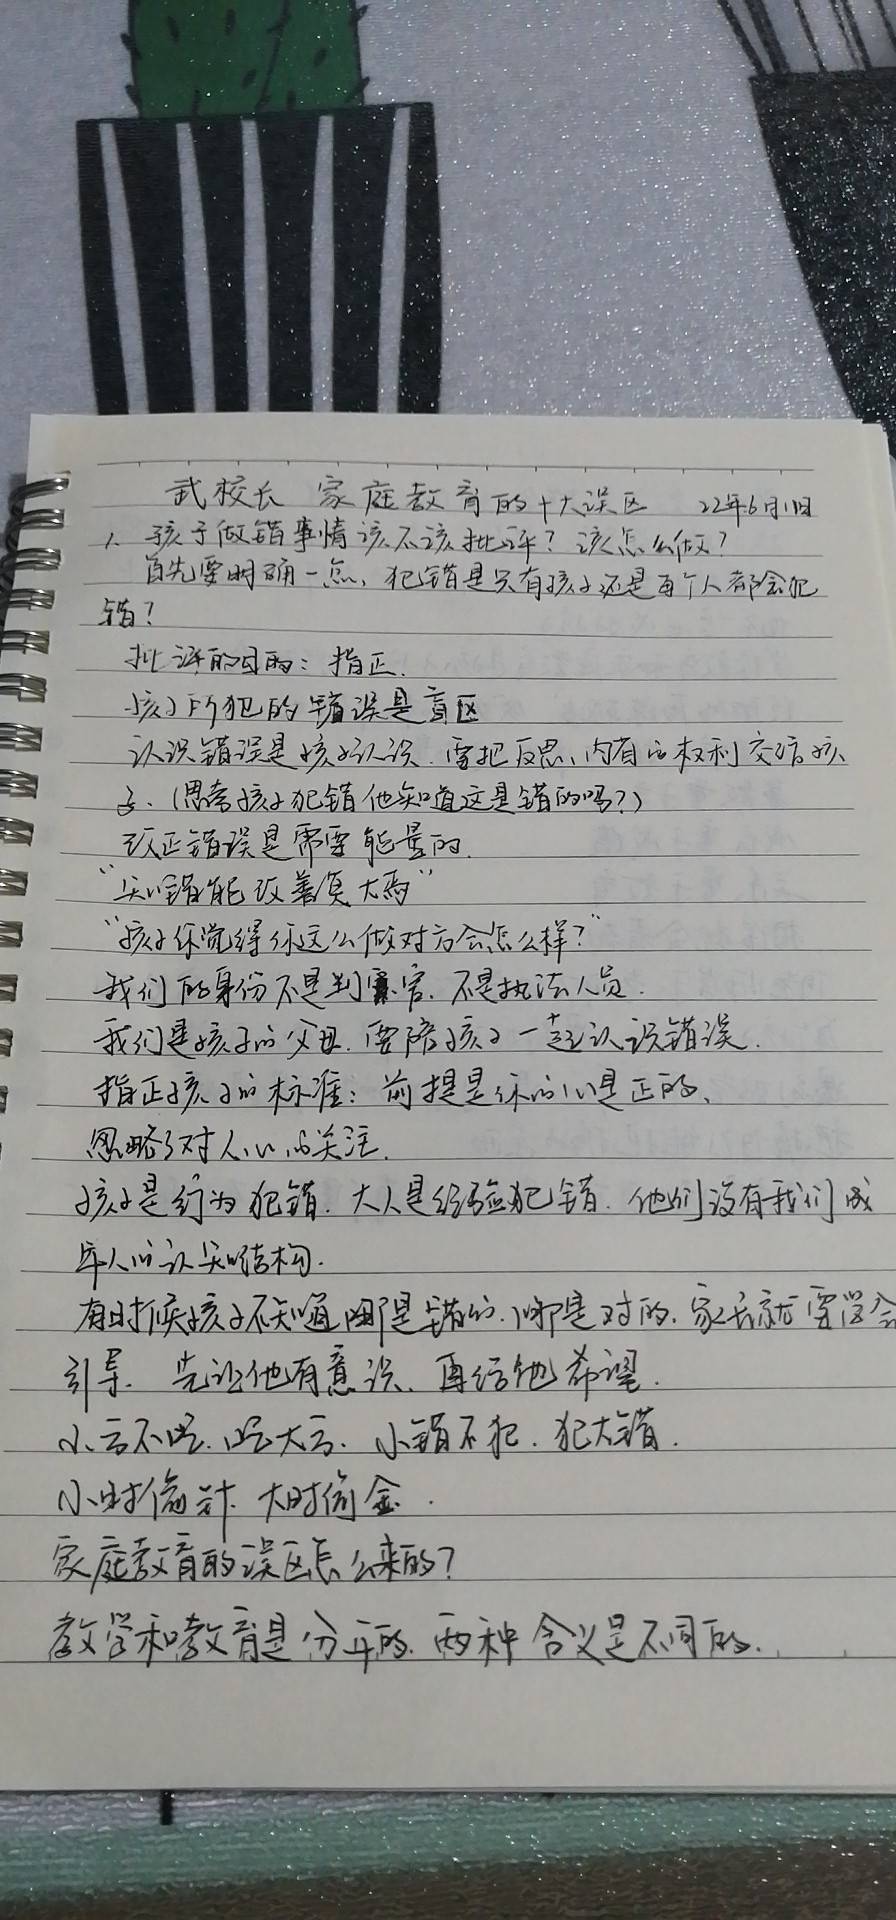 武校长 家庭教育的十大误区 22年6月1日
1、孩子做错事情该不该批评？该怎么做？
首先要明确一点、犯错是只有孩子还是每个人都会犯
错？
批评的目的：指正.
孩子所犯的错误是盲区
认识错误是孩子认识.需把反思、内省的权利交给孩
子.（思考孩子犯错他知道这是错的吗？）
改正错误是需要能量的.
“知错能改善莫大焉”
“孩子你觉得你这么做对方会怎么样？”
我们的身份不是判官.不是执法人员.
我们是孩子的父母.要陪孩子一起认识错误.
指正孩子的标准：前提是你的心是正的、
忽略了对人心的关注.
孩子是行为犯错.大人是经验犯错.他们没有我们成
年人的认知结构.
有时候孩子不知道哪是错的.哪是对的.家长就要学会
引导.先让他有意识.再给他希望.
小亏不吃.吃大亏.小错不犯.犯大错.
小时偷针.大时偷金.
家庭教育的误区怎么来的？
教学和教育是分开的.两种含义是不同的.